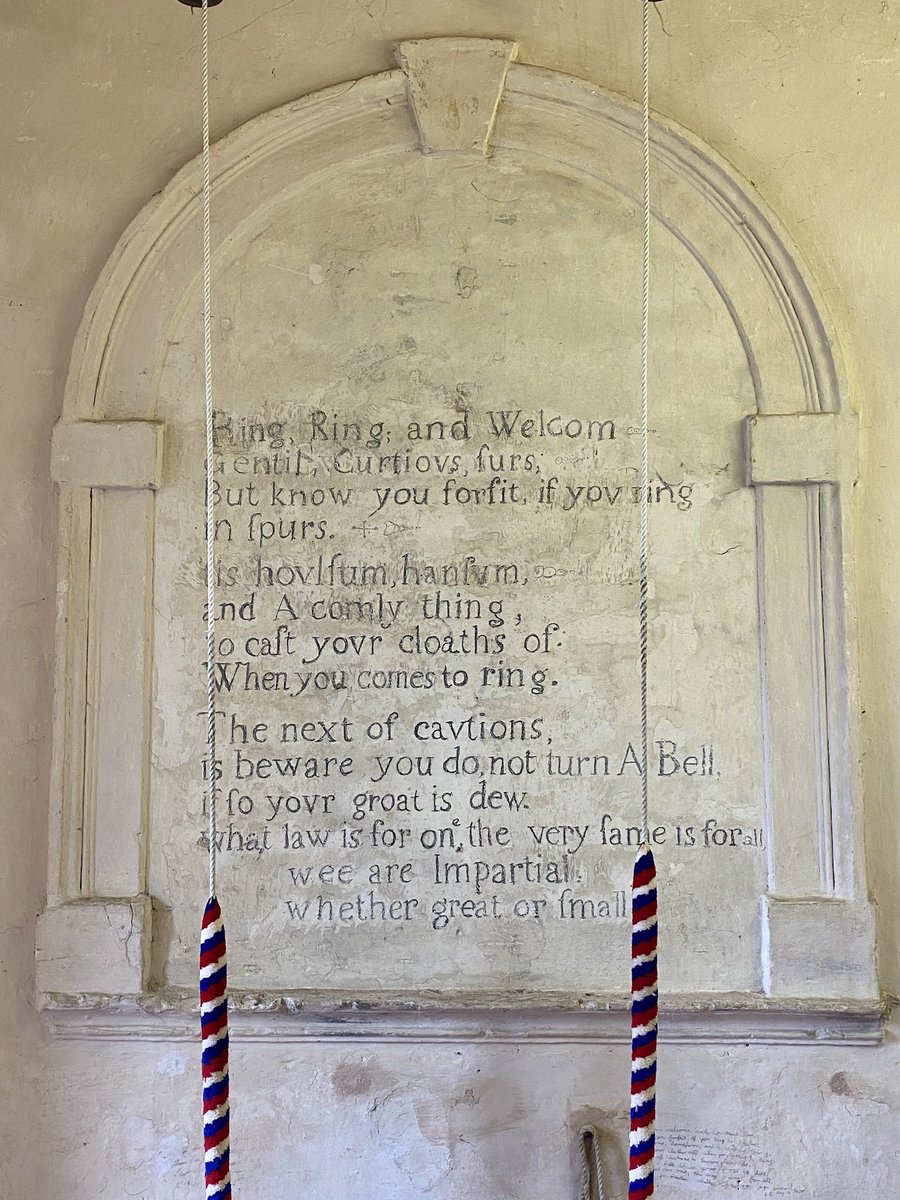 Ring, Ring; and Welcom
Gentil, Curtiovs, ſurs;
But know you forfit, if yov ring
in ſpurs.
tis hovlſum, hanſvm,
and A comly thing,
to caſt yovr cloaths of:
When you comes to ring.
The next of cavtions,
is beware you do, not turn A Bell,
if ſo yovr groat is dew.
what law is for one, the very ſame is for all
wee are Impartial.
whether great or ſmall